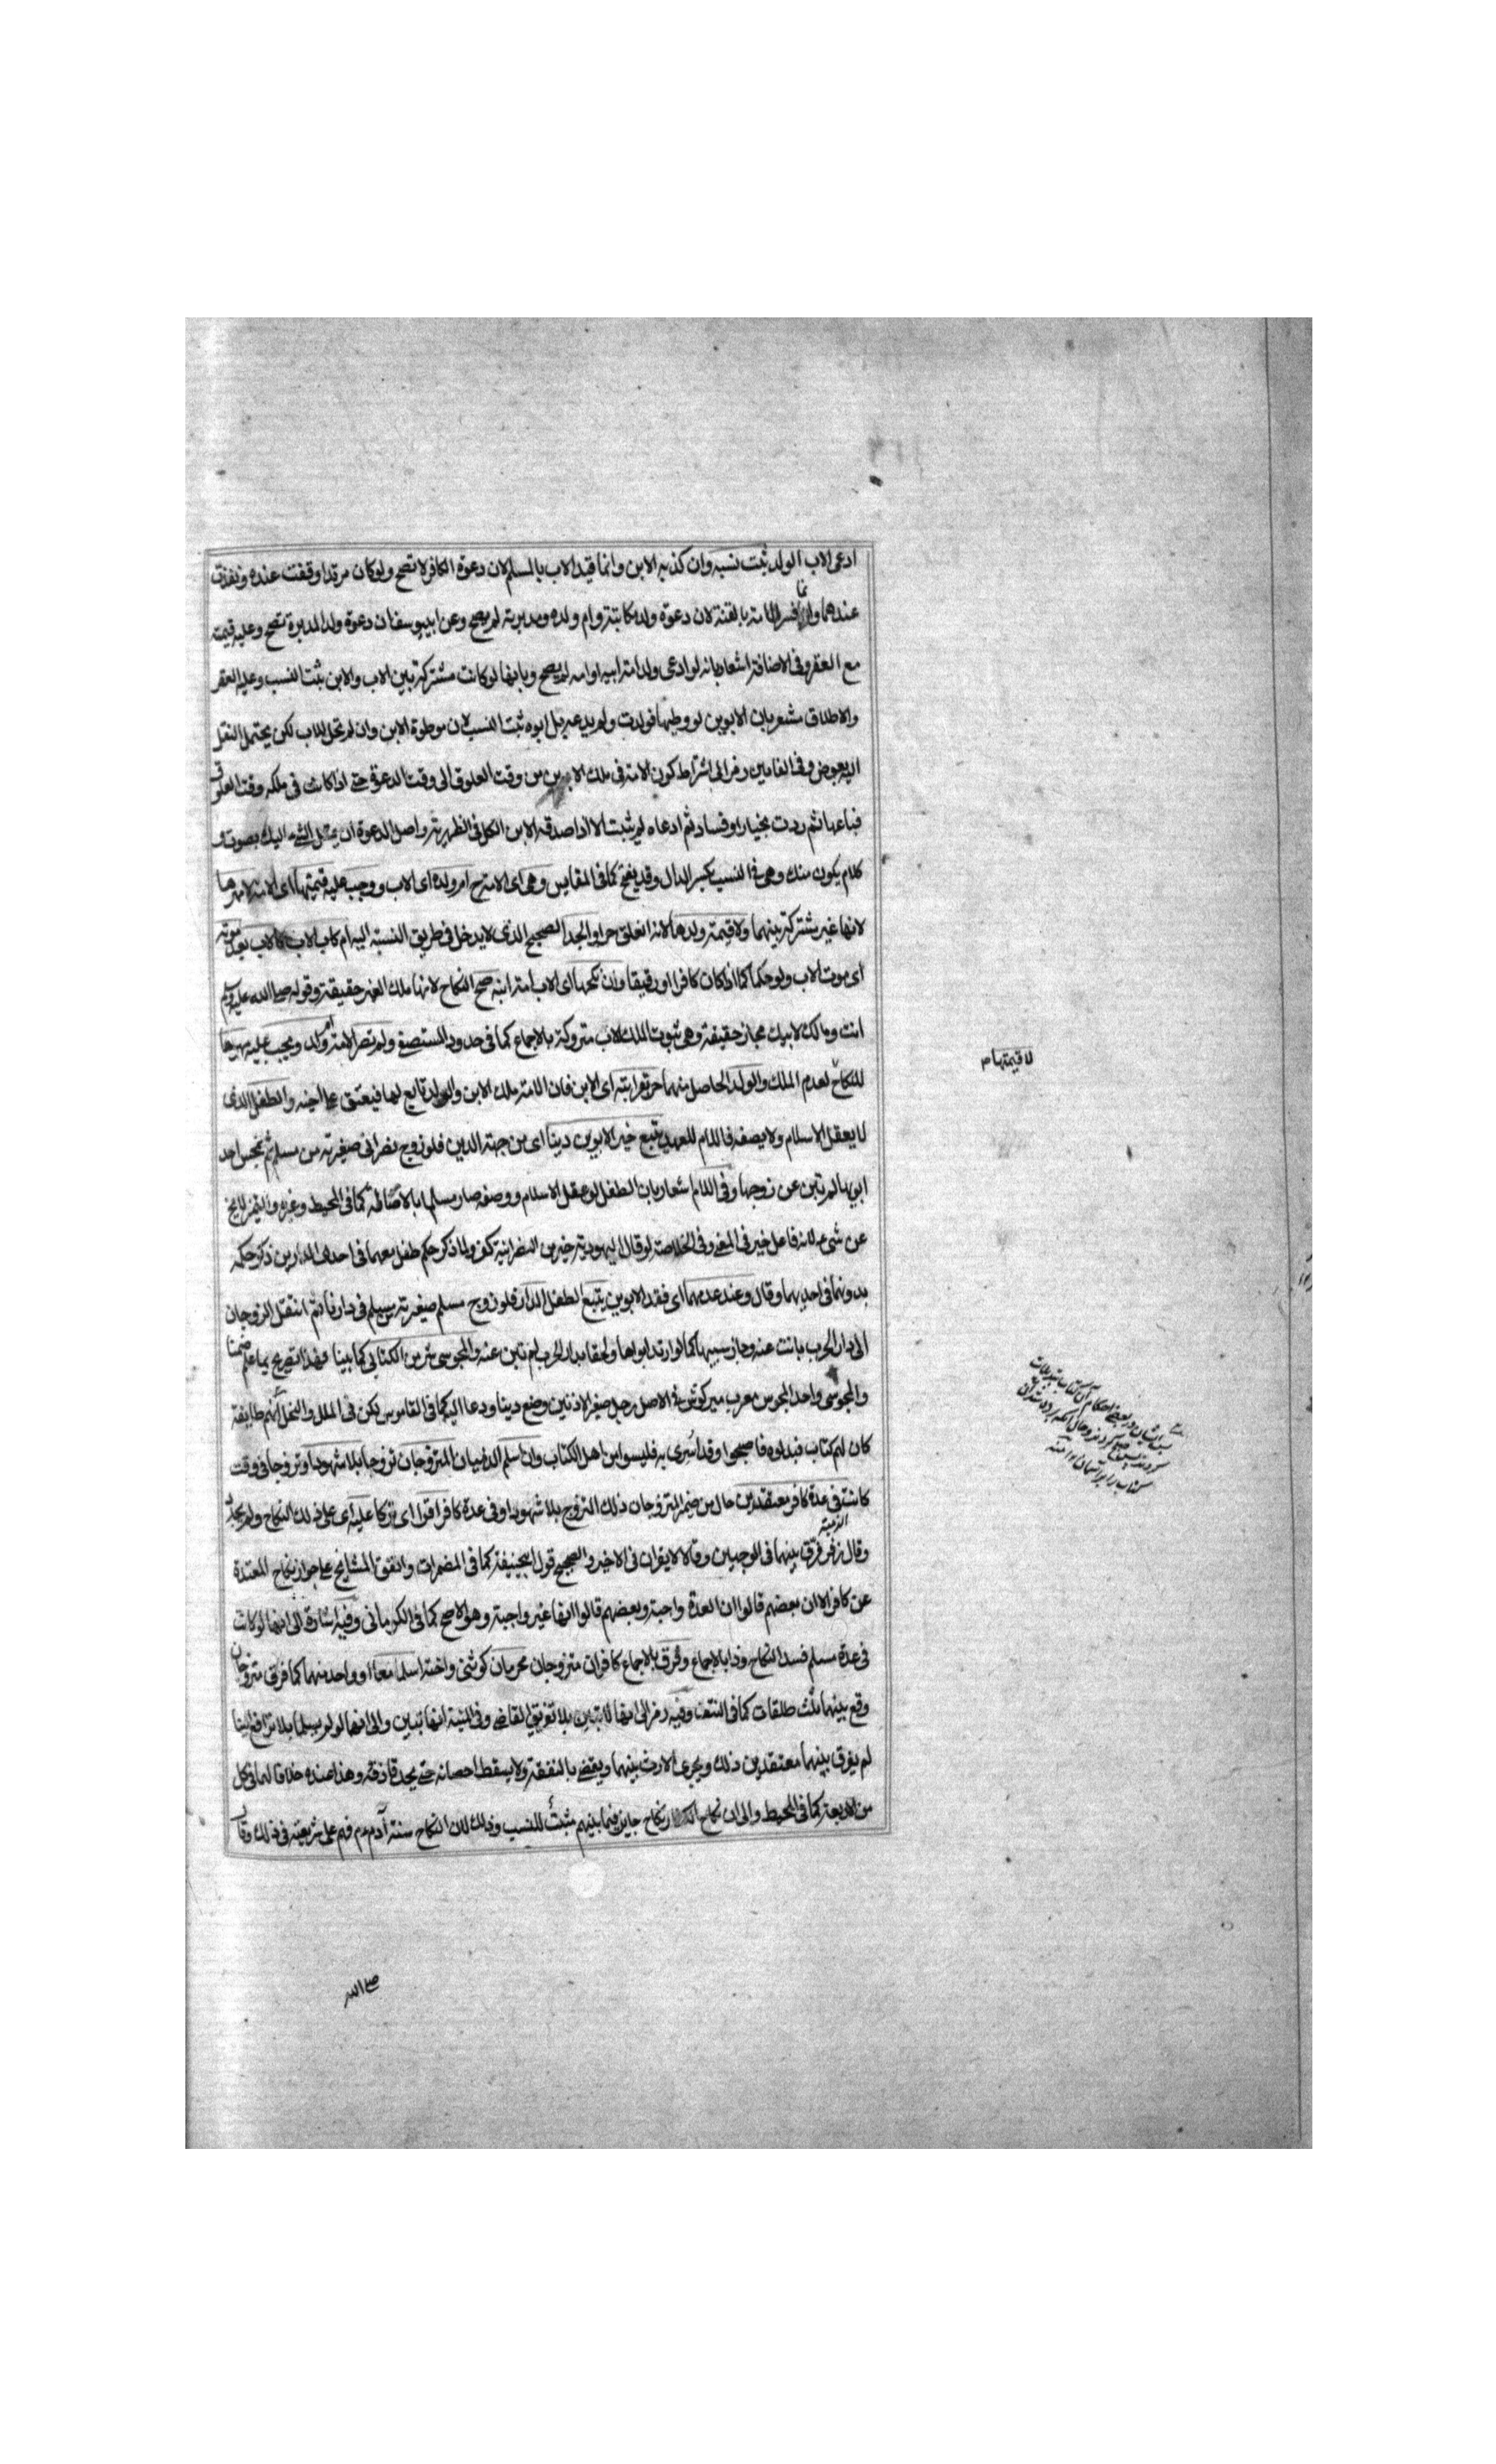 ادعى الاب الولد ثبت نسبه وان كذبه الابن وانما قيد الاب بالمسلم لان دعوة الكافر لا تصح ولو كان مرتدا وقفت عنده ونفذت
عندهما وانما فسر الامة بالقنة لان دعوة ولد مكاتبته وام ولده ومدبرته لم يصح وعن ابييوسف ان دعوة ولد المدبرة تصح وعليه قيمته
مع العقر وفى الاضافة اشعار بانه لو ادعى ولد امة ابيه او امه لم يصح وبانها لو كانت مشتركة بين الاب والابن ثبت النسب وعليه العقر
والاطلاق مشعر بان الابوين لو وطيها فولدت ولم يدعيه بل ابوه ثبت النسب لان موطوة الابن وان لم تحل للاب لكن يحتمل النقل
اليه بعوض وفى القا رمز الى اشتراط كون الامة فى ملك الابن من وقت العلوق الى وقت الدعوة حتى اذا كانت فى ملكه وقت العلوق
فباعها ثم ردت بخيار او فساد ثم ادعاه لم يثبت الا اذا صدقه الابن الكل فى الظهيرية واصل الدعوة ان يميل الشئ اليك بصوت و
كلام يكون منك وهى فى النسب بكسر الدال وقد يفتح كما فى المقايس وهى اى الامة ح ام ولده اى الاب ووجب عليه قيمتها اى الامة لا مهرها
لانها غير مشتركة بينهما ولا قيمة ولدها لانه انعلق حرا والجد الصحيح الذى لا يدخل فى طريق النسبة اليه ام كاب الاب كالاب بعد موته
اى موت الاب ولو حكما كما اذا كان كافرا او رقيقا وان نكحها اى الاب امة ابنه صح النكاح لانها ملك الغير حقيقة وقوله صلى الله عليه وسلم
انت ومالك لابيك مجاز حقيقة وهى ثبوت الملك للاب متروكة بالاجماع كما فى حدود المستصفى ولم تصر الامة ام ولد ويجب عليه مهرها
للنكاح لعدم الملك والولد الحاصل منهما حر بقرابته اى الابن فان الامة ملك الابن والولد تابع لها فيعتق على اخيه والطفل الذى
لا يعقل الاسلام ولا يصفه فاللام للعهد يتبع خير الابوين دينا اى من جهة الدين فلو زوج نصرانى صغيرته من مسلم ثم تمجس احد
ابويها لم تبن عن زوجها وفى اللام اشعار بان الطفل لو عقل الاسلام ووصفه صار مسلما بالاصالة كما فى المحيط وغيره والتميز لا يخ
عن شئ لانه فاعل خير فى المغنى وفى الخلاصة لو قال اليهودية خير من النصرانية كفر ولما ذكر حكم طفل معهما فى احدى الدارين ذكر حكمه
بدونهما فى احديهما وقال وعند عدمهما اى فقد الابوين يتبع الطفل الدار فلو زوج مسلم صغيرته من مسلم فى دارنا ثم انتقل الزوجان
الى دار الحرب بانت عنه وجاز سبيها كما لو ارتد ابواها ولحقا بدار الحرب لم تبن عنه والمجوسى شر من الكتابى كما بينا فهذا تصريح بما علم ضمنا
والمجوسى واحد المجوس معرب ميركوش فى الاصل رجل صغير الاذنين وضع دينا ودعا اليه كما فى القاموس لكن فى الملل والنحل انهم طايفة
كان لهم كتاب فبدلوه فاصبحوا وقد اسرى به فليسوا من اهل الكتاب وان اسلم الذميان المتزوجان تزوجا بلا شهود او تزوجا فى وقت
كانت فى عدة كافر معتقدين حال من ضمير المتزوجان ذلك التزوج بلا شهود او فى عدة كافر اقرا اى تركا عليه اى على ذلك النكاح ولم يجدد
الذمية
وقال زفر فرق بينهما فى الوجهين وقالا لا يقران فى الاخير والصحيح قول ابيحنيفة كما فى المضمرات واتفق المشايخ على جواز نكاح المعتدة
عن كافر الا ان بعضهم قالوا ان العدة واجبة وبعضهم قالوا انها غير واجبة وهو الاصح كما فى الكرمانى وفيه اشارة الى انها لو كانت
فى عدة مسلم فسد النكاح وذا بالاجماع وفرق بالاجماع كافران متزوجان محرمان كوثنى واخته اسلما معا او واحد منهما كما فرق متزوجان
وقع بينهما ثلث طلقات كما فى النتف وفيه رمز الى انها لا تبين بلا تفريق القاضى وفى المنية انها تبين والى انهما لو لم يسلما بلا ترافع الينا
لم يفرق بينهما معتقدين ذلك ويجرى الارث بينهما ويقضى بالنفقة ولا يسقط احصانه حتى يحد قاذفه وهذا عنده خلافا لهما فى كل
من الاربعة كما فى المحيط والى ان نكاح الكفار نكاح جايز فيما بينهم مثبت للنسب وذلك لان النكاح سنة آدم عم فهم على شريعته فى ذلك وقال
لا قيمتها م
صلى الله